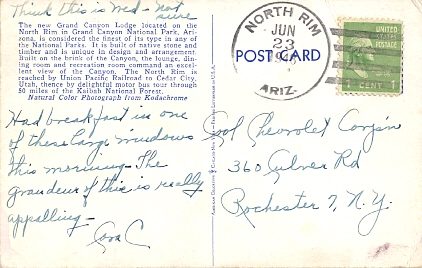 Think this is Wed - not
sure
The new Grand Canyon Lodge located on the
North Rim in Grand Canyon National Park, Ari-
zona, is considered the finest of its type in any of
the National Parks. It is built of native stone and
timber and is unique in design and arrangement.
Built on the brink of the Canyon, the lounge, din-
ing room and recreation room command an excel-
lent view of the Canyon. The North Rim is
reached by Union Pacific Railroad to Cedar City,
Utah, thence by delightful motor bus tour through
50 miles of the Kaibab National Forest.
Natural Color Photograph from Kodachrome
Had breakfast in one
of these large windows
this morning - The
grandeur of this is really
appalling -
Cora C
NORTH RIM
JUN
23
ARIZ.
POST CARD
UNITED
POSTAGE
CENT
Chevrolet
360 Culver Rd
Rochester 7, N.Y.